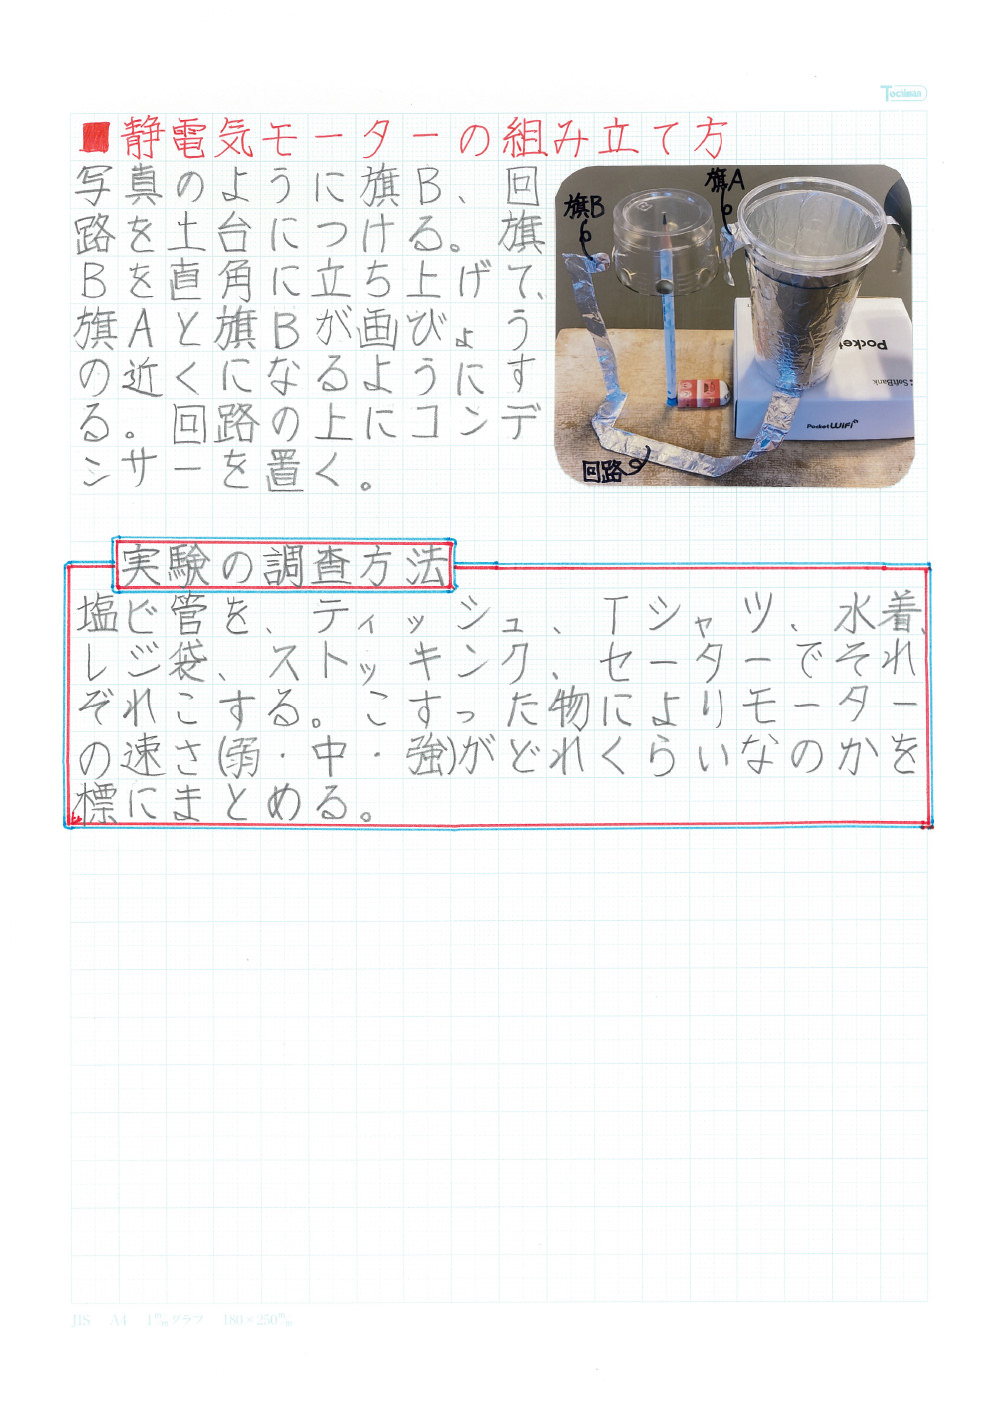 Tochiman
■静電気モーターの組み立て方
写真のように旗B、回
路を土台につける。旗
Bを直角に立ち上げて、
旗Aと旗Bが画びょう
の近くになるようにす
る。回路の上にコンデ
ンサーを置く。
旗B
旗A
Pocket
SoftBank
Pocket WiFi
回路
実験の調査方法
塩ビ管を、ティッシュ、Tシャツ、水着、
レジ袋、ストッキング、セーターでそれ
ぞれこする。こすった物によりモーター
の速さ(弱・中・強)がどれくらいなのかを
標にまとめる。
JIS A4 1mmグラフ 180×250mm